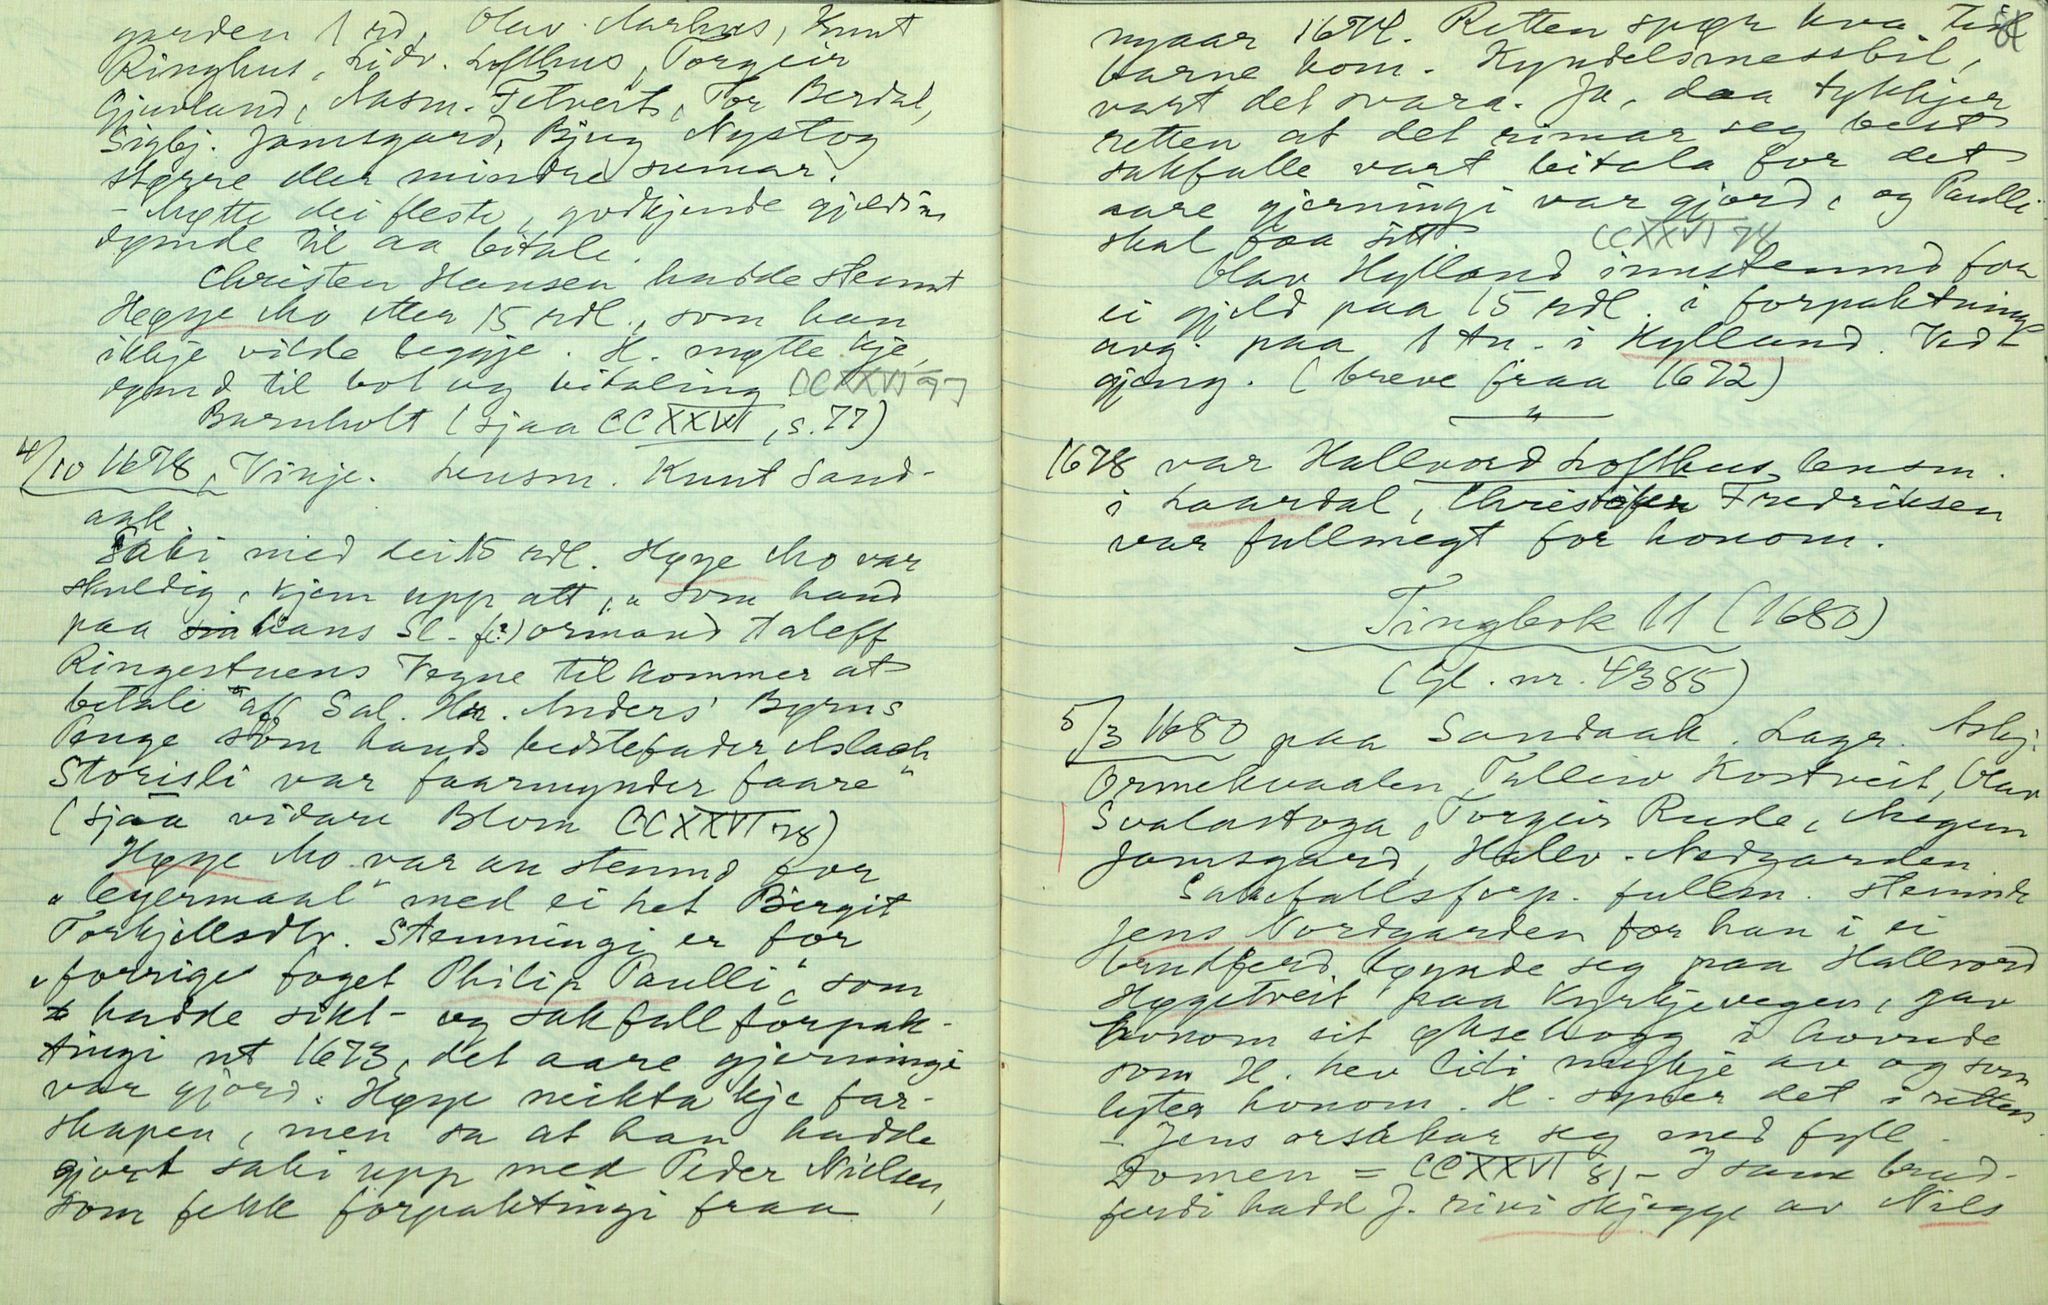 garden 1 rd, Olav Aarhus, Knut
Ringhus, Lidv. Lofthus, Torgeir
Gjuvland, Aasm. Fitveit, Tor Berdal,
Sigbj. Jamsgard, Bjug Nystog
større eller mindre sumar.
- Møtte dei fleste, godkjende gjeldi
dømde til aa bitale.
Christen Hansen hadde stemt
Høgje Mo etter 15 rdl., som han
ikkje vilde leggje. H. møtte kje,
dømd til bot og bitaling CCXXVI 77
Barnholt (sjaa CCXXVI, s. 77)
4/10 1678, Vinje. Lensm. Knut Sand-
aak.
Saki med dei 15 rdl. Høgje Mo var
skuldig, kjem upp att, "som hand
paa hans Sl. f(?)ormand Aaleff
Ringestuens Vegne tilkommer at
betale aff Sal. Hr. Anders Byrns
Penge som hands bedstefader Aslach
Storisli var faarmynder faare"
(sjaa vidare Blom CCXXVI 78)
Høgje Mo var an stemnd for
"leyermaal" med ei het Birgit
Torkjellsdtr. Stemningi er for
"forrige foget Philip Paulli", som
hadde sikt- og sakfall forpak-
tingi ut 1673, det aare gjerningi
var gjord. Høgje neikta kje far-
skapen, men sa at han hadde
gjort saki upp med Peder Nielsen,
som fekk forpaktingi fraa
nyaar 1674. Retten spør kva tid
barne kom. Kyndelsmessbil,
vart det svara. Ja, daa tykkjer
retten at det rimar seg best
sakfalle vart bitala for det
aare gjerningi var gjord, og Paulli
skal faa sitt. CCXXVI 78
Olav Hylland innstemnd for
ei gjeld paa 15 rdl. i forpaktning
avg. paa 1 tn. i Hylland. Vedt
gjeng. (breve fraa 1672)
"
1678 var Hallvord Lofthus lensm.
i Laardal, Christofer Fredriksen
var fullmegt for honom.
Tingbok 11 (1680)
(Gl. nr. 4385)
5/3 1680 paa Sandaak. Lagr. Asbj.
Ormekvaalen, Talleiv Kostveit, Olav
Svalastoga, Torgeir Rude, Aagun
Jamsgard, Hallv. Nedgarden
Sakefallsforp. fullm. stemnde
Jens Nordgarden for han i ei
brudferd tøynde seg paa Hallvord
Høgetveit paa kyrkjevegen, gav
honom eit øksehogg i hovude
som H. hev lidi mykje av og som
lyter honom. H. syner det i retten.
- Jens orsakar seg med fyll -
Domen = CCXXVI 81 - I same brud-
ferdi hadd J. rivi skjegge av Nils